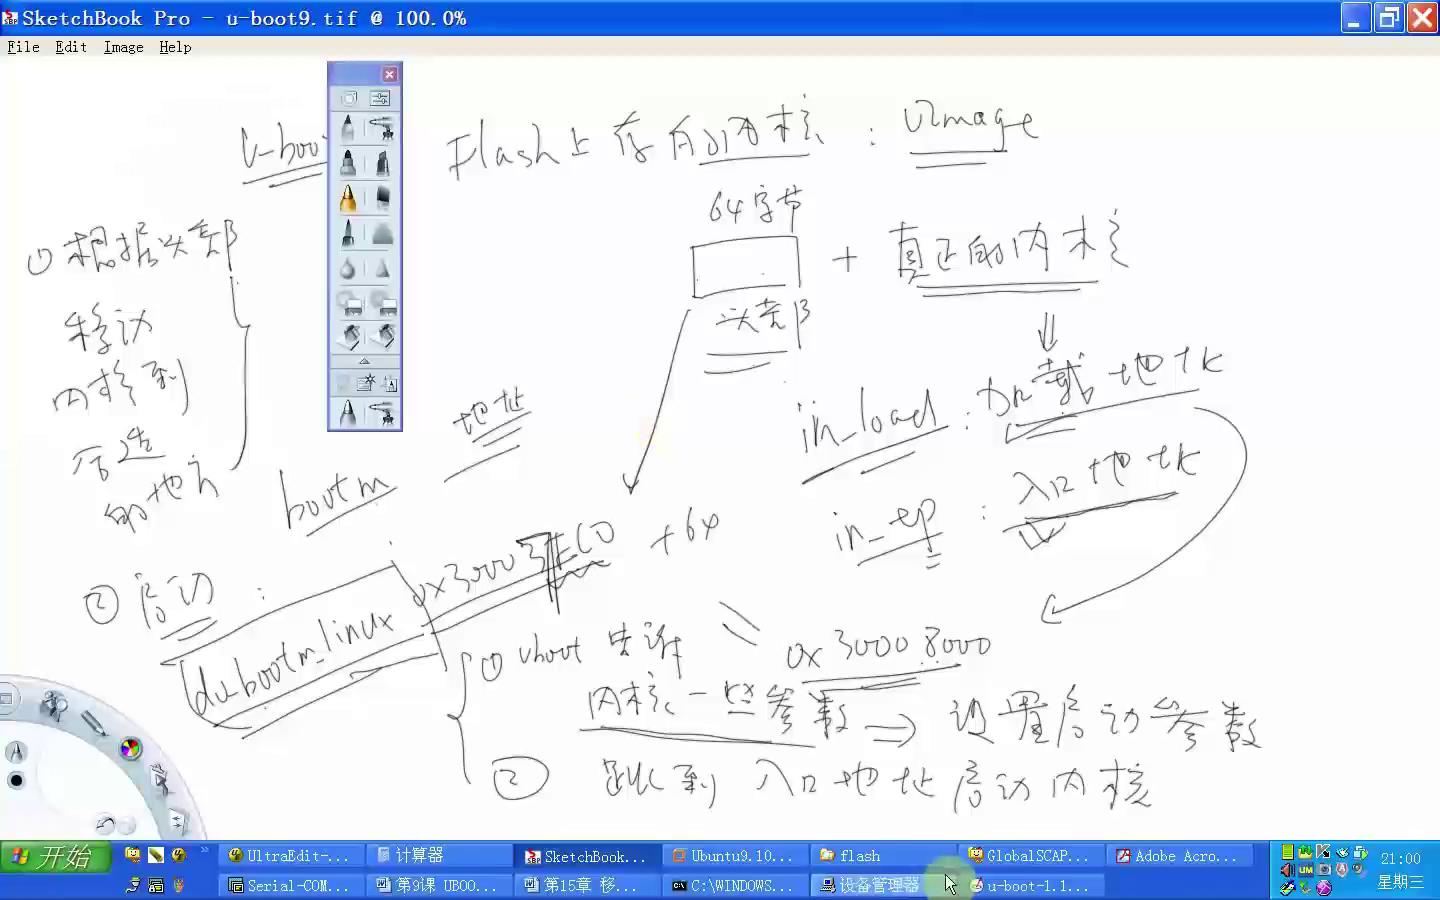 SketchBook Pro - u-boot9.tif @ 100.0%
File Edit Image Help
U-boo
Flash上存有的内核 : UImage
64字节
+ 真正的内核
头部
① 根据头部
移动
内核到
合适
的地方
in_load : 加载地址
in_ep : 入口地址
bootm 地址
0x30007FC0 +64
② 启动 :
do_bootm_linux
0x30008000
① uboot 告诉
内核一些参数 ⇒ 设置启动参数
② 跳到 入口地址启动内核
开始
UltraEdit-...
计算器
SketchBook...
Ubuntu9.10...
flash
GlobalSCAP...
Adobe Acro...
21:00
Serial-COM...
第9课 UBOO...
第15章 移...
C:\WINDOWS...
设备管理器
u-boot-1.1...
星期三